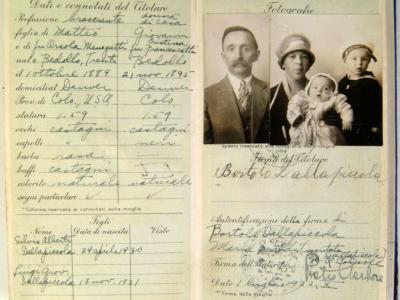 Dati e connotati del Titolare
Professione bracciante donna di casa
figlio di Matteo Giovanni
e di fu Orsola Menegatti fu
nato a Bedollo, Trento Bedollo
il 1 ottobre 1889 21 nov. 1895
domiciliato Denver Denver
Prov. di Colo, USA Colo,
statura 1.59 1.59
occhi castagni castagni
capelli " neri
barba rasa
baffi castagni
colorito naturale naturale
segni particolari
*Colonna riservata ai connotati della moglie.
Figli
Nome Data di nascita Visto
Silvio Alberto
Dallapiccola 24 aprile 1930
Luigi Giov.
Dallapiccola 18 nov. 1931
Fotografie
Firma del Titolare
Bortolo Dallapiccola
Autenticazione della firma di
Bortolo Dallapiccola
Maria
Firma dell'Autorità
Data 1 luglio 1932
*Firma della moglie.